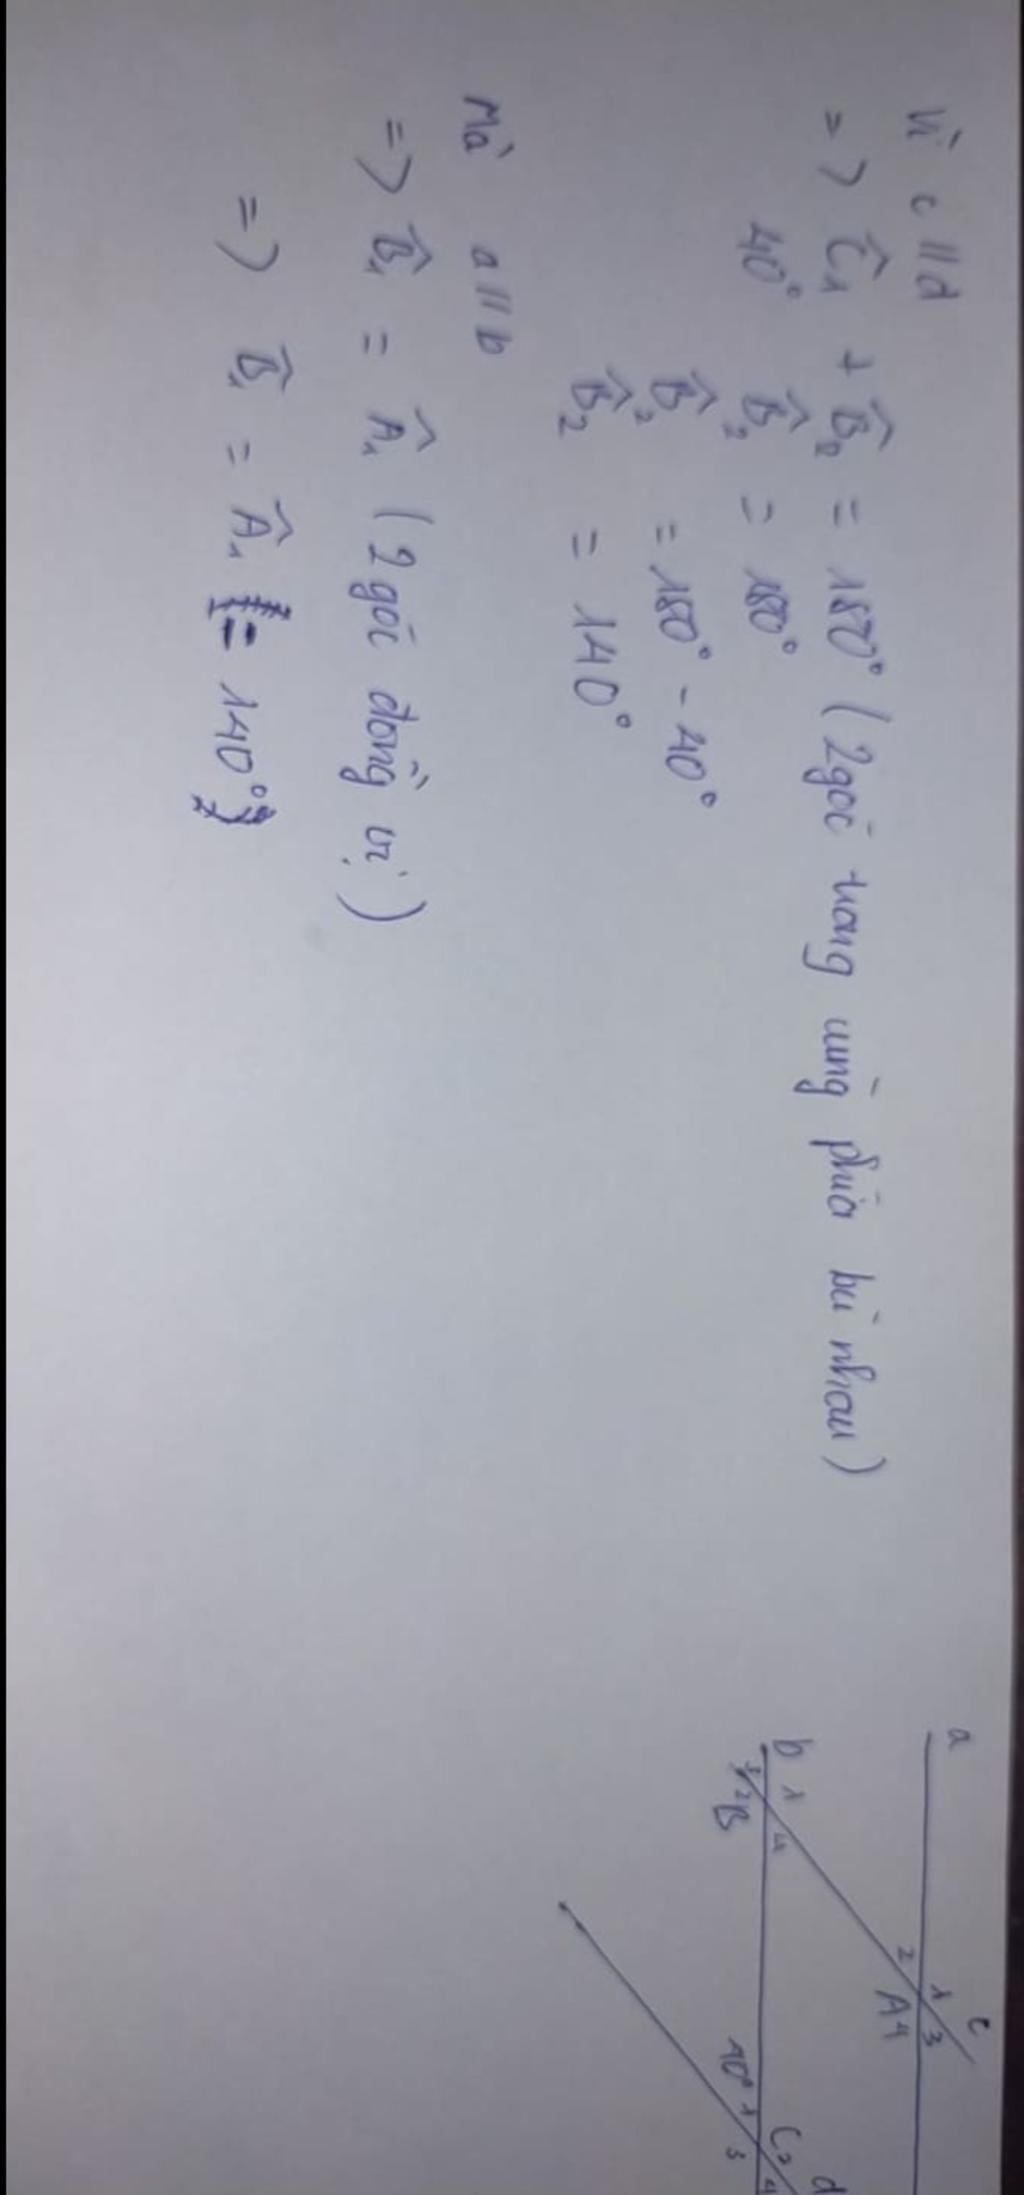 Vì c // d
=> Ĉ₁ + B̂₂ = 180° (2 góc trong cùng phía bù nhau)
40° B̂₂ = 180°
B̂₂ = 180° - 40°
B̂₂ = 140°
Mà a // b
=> B̂₁ = Â₁ (2 góc đồng vị)
=> B̂₁ = Â₁ = 140°
a
c
1
3
2
A 4
b 1
4
3 2 B
d
C 2
40° 1
4
3